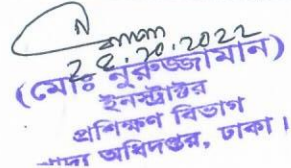 ২৪.১০.২০২২
(মোঃ নুরুজ্জামান)
ইনস্ট্রাক্টর
প্রশিক্ষণ বিভাগ
খাদ্য অধিদপ্তর, ঢাকা।